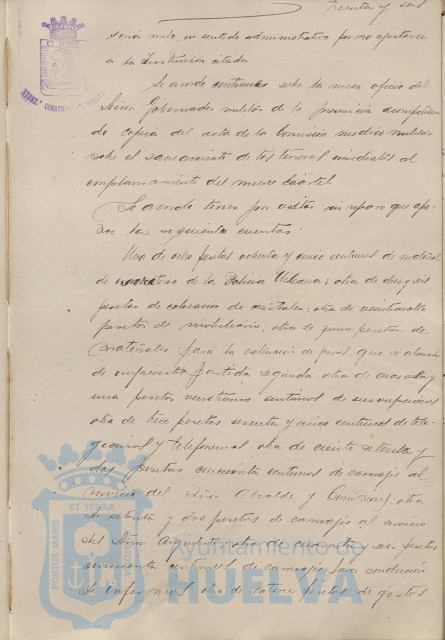 treinta y seis
serán nulo, en sentido administrativo por no ajustarse
a la Instrucción citada
Se acordó sobre la mesa oficio del
Señor Gobernador militar de la provincia acompañan
do copia del acta de la Comisión medico militar
sobre el saneamiento de los terrenos inmediatos al
emplazamiento del nuevo Cuartel
Se acordó tener por vistas sin reparo que opo-
ner las siguientes cuentas.
Una de ocho pesetas ochenta y cinco centimos de material
de escritorio de la Policia Urbana; otra de
pesetas de colocación de cristales; otra de veinticuatro
pesetas de mobiliario; otra de quince pesetas de
materiales para la extinción de que se
de imprevistos partida segunda; otra de cuarenta y
una pesetas veintiun centimos de suscripciones
otra de trece pesetas sesenta y cinco centimos de tele-
gramas y telefonemas otra de ciento setenta y
dos pesetas cincuenta centimos de carruajes al
servicio del Señor Alcalde y Comisiones; otra
de setenta y dos pesetas de carruajes al servicio
del Señor Arquitecto; otra de cuarenta y seis pesetas
cincuenta centimos de carruajes para conducción
de enfermos otra de catorce pesetas de gastos
PORTUS MARIS
ET TERRAE
Ayuntamiento de
HUELVA